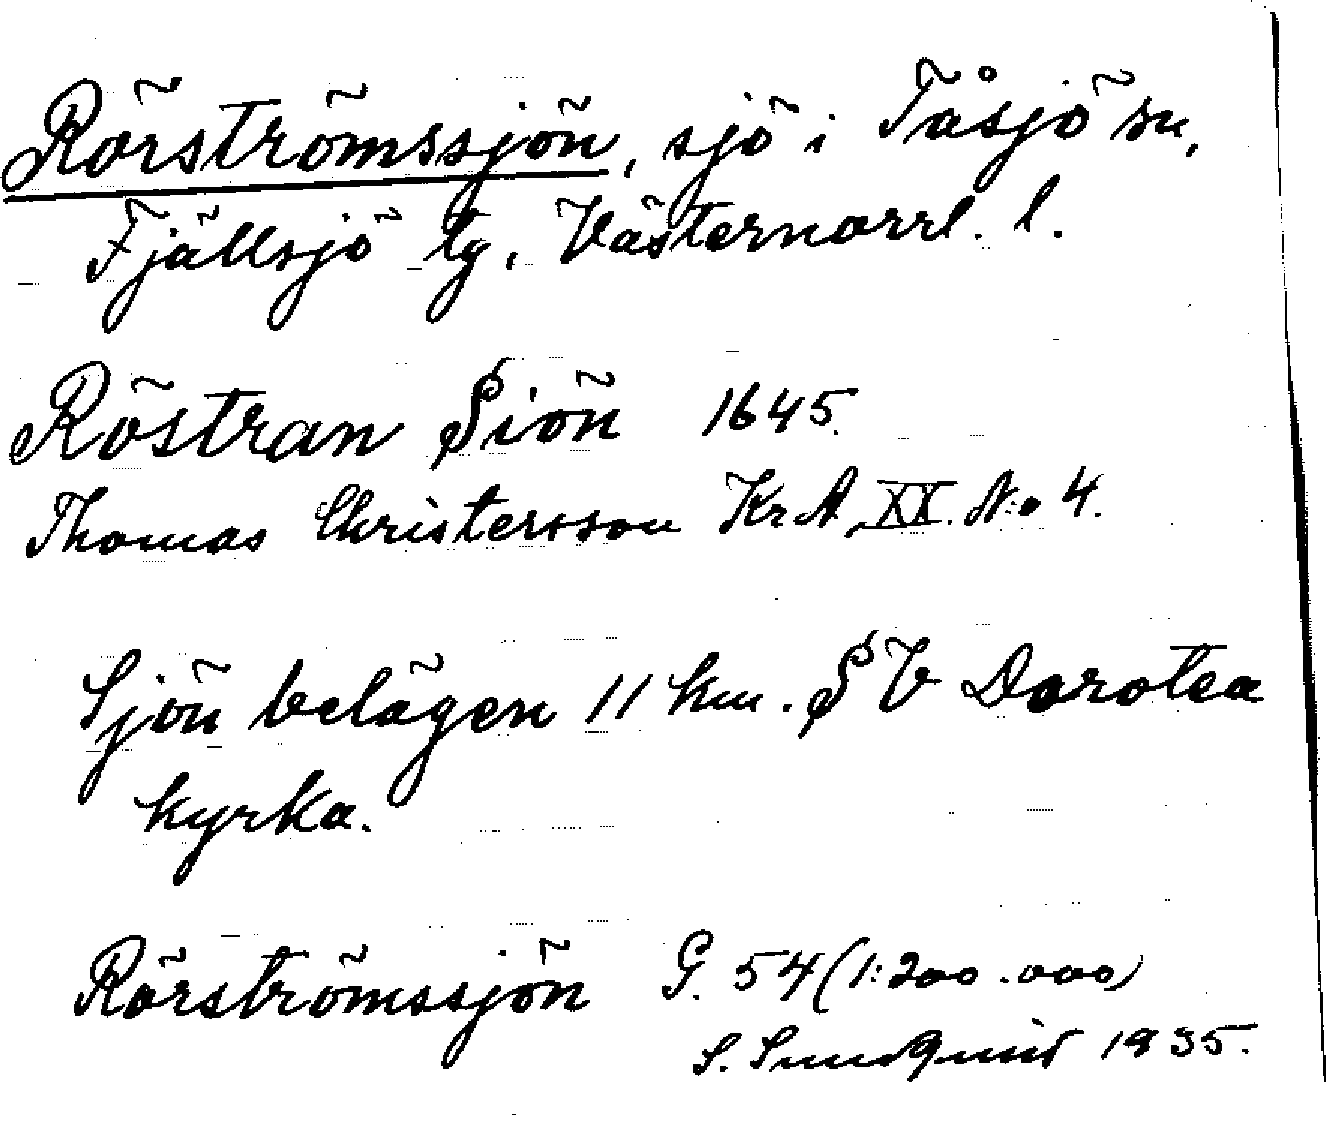 Rörströmssjön, sjö i Tåsjö sn,
Fjällsjö tg, Västernorrl. l.
Röstran Siön 1645.
Thomas Christersson KrA, XX. N:o 4.
Sjön belägen 11 km. SV Dorotea
kyrka.
Rörströmssjön G. 54 (1:200.000)
S. Sundquist 1935.